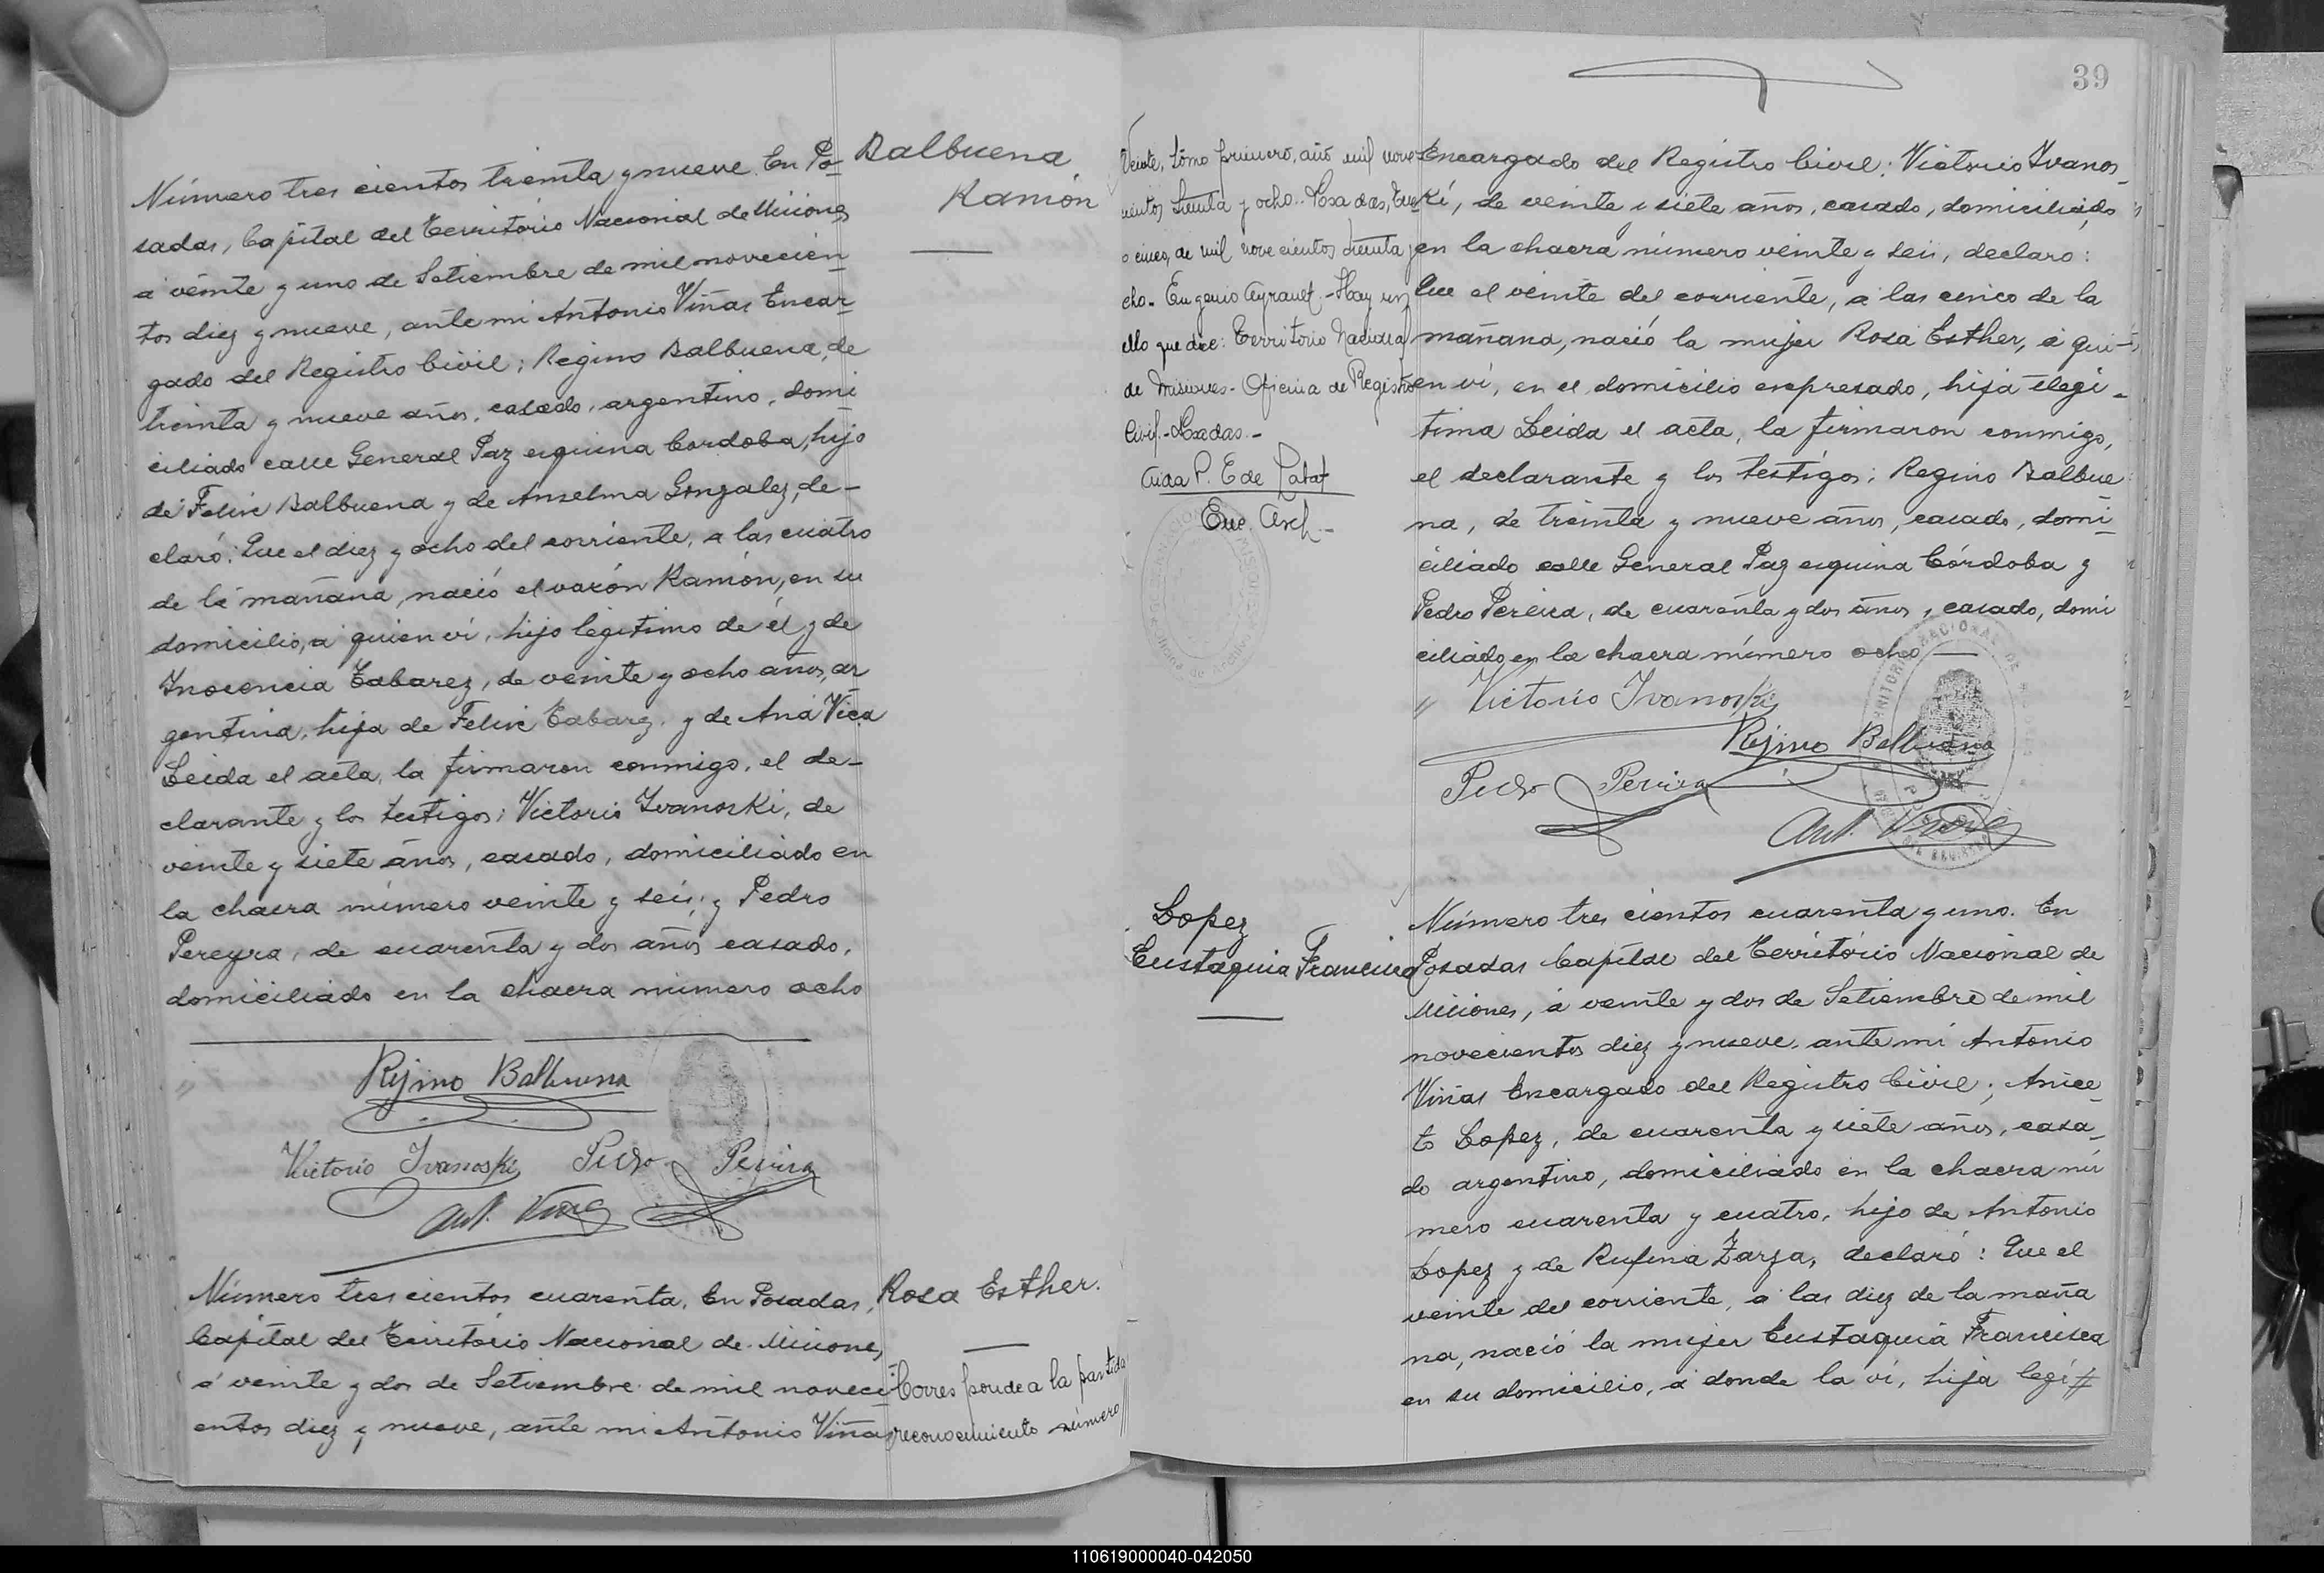 Balbuena
Ramón
Número tres cientos treinta y nueve. En Po-
sadas, Capital del Territorio Nacional de Misiones
a veinte y uno de Setiembre de mil novecien-
tos diez y nueve, ante mi Antonio Viñas Encar-
gado del Registro Civil; Regino Balbuena, de
treinta y nueve años, casado, argentino, domi-
ciliado calle General Paz esquina Cordoba, hijo
de Felix Balbuena y de Anselma Gonzalez, de-
claró: Que el diez y ocho del corriente, a las cuatro
de la mañana, nació el varón Ramón, en su
domicilio, a quien vi, hijo legitimo de él y de
Inocencia Tabarez, de veinte y ocho años, ar-
gentina, hija de Felix Tabarez y de Ana
Leida el acta, la firmaron conmigo, el de-
clarante y los testigos; Victorio Ivanoski, de
veinte y siete años, casado, domiciliado en
la chacra número veinte y seis; y Pedro
Pereyra, de cuarenta y dos años casado,
domiciliado en la chacra número ocho
Rejino Balbuena
Victorio Ivanoski Pedro Pereira
Ant. Viñas
Rosa Esther.
Número tres cientos cuarenta. En Posadas,
Capital del Territorio Nacional de Misiones,
a veinte y dos de Setiembre de mil noveci-
entos diez y nueve, ante mi Antonio Viñas
Corresponde a la partida
reconocimiento número
39
Veinte, tomo primero, año mil nove-
cientos treinta y ocho. Posadas, Enero
cinco, de mil novecientos treinta y
ocho. Eugenio Ayrault. - Hay un
sello que dice: Territorio Nacional
de Misiones - Oficina de Registro
Civil. - Posadas. -
Enc. Arch. -
Encargado del Registro Civil; Victorio Ivanos-
ki, de veinte y siete años, casado, domiciliado
en la chacra número veinte y seis, declaro:
Que el veinte del corriente, a las cinco de la
mañana, nació la mujer Rosa Esther, a qui-
en vi, en el domicilio expresado, hija ilegi-
tima Leida el acta, la firmaron conmigo,
el declarante y los testigos; Regino Balbue-
na, de treinta y nueve años, casado, domi-
ciliado calle General Paz esquina Córdoba y
Pedro Pereira, de cuarenta y dos años, casado, domi
ciliado en la chacra número ocho
Victorio Ivanoski
Rejino Balbuena
Pedro Pereira
Ant. Viñas
Lopez
Eustaquia Francisca
Número tres cientos cuarenta y uno. En
Posadas Capital del Territorio Nacional de
Misiones, a veinte y dos de Setiembre de mil
novecientos diez y nueve, ante mi Antonio
Viñas Encargado del Registro Civil; Anice-
to Lopez, de cuarenta y siete años, casa-
do argentino, domiciliado en la chacra nú
mero cuarenta y cuatro, hijo de Antonio
Lopez y de Rufina Zarza, declaró: Que el
veinte del corriente, a las diez de la maña
na, nació la mujer Eustaquia Francisca
en su domicilio, a donde la vi, hija legi #
110619000040-042050